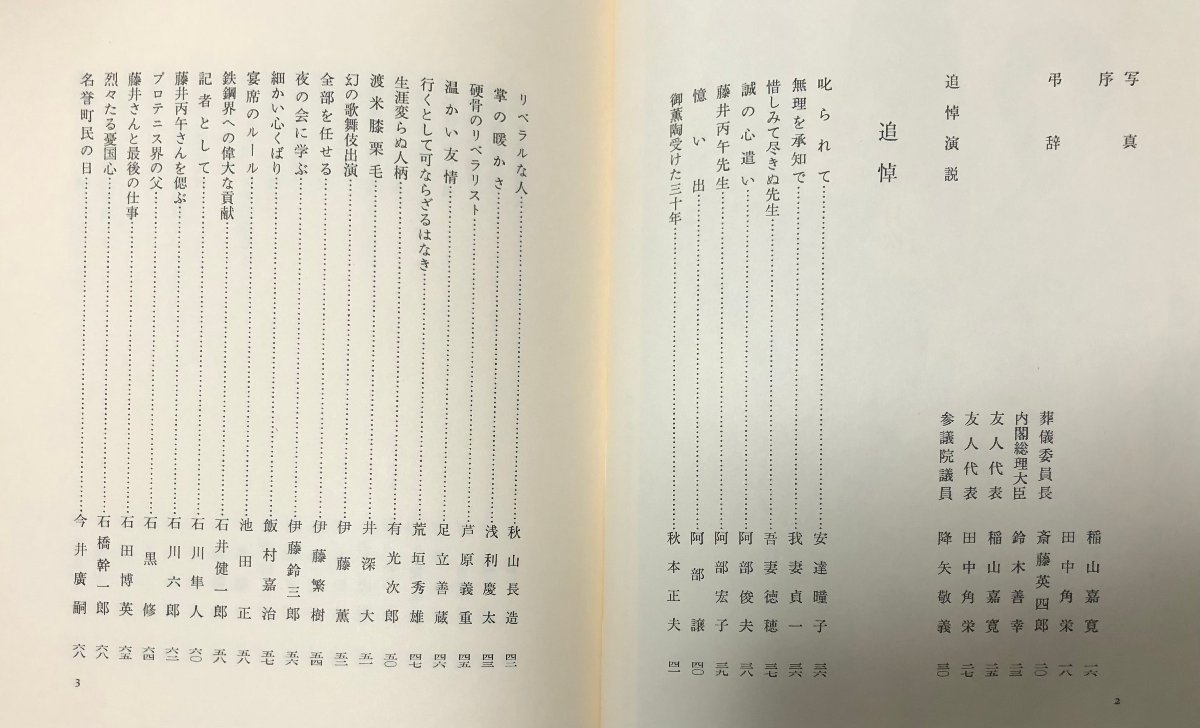 写真
序
稲山嘉寛 一六
田中角栄 一八
弔辞 葬儀委員長 斎藤英四郎 二〇
内閣総理大臣 鈴木善幸 二三
友人代表 稲山嘉寛 二五
友人代表 田中角栄 二七
追悼演説 参議院議員 降矢敬義 三〇
追悼
叱られて……安達瞳子 三六
無理を承知で……我妻貞一 三六
惜しみて尽きぬ先生……吾妻徳穂 三七
誠の心遣い……阿部俊夫 三八
藤井丙午先生……阿部宏子 三九
憶い出……阿部譲 四〇
御薫陶受けた三十年……秋本正夫 四一
2
リベラルな人……秋山長造 四二
掌の暖かさ……浅利慶太 四三
硬骨のリベラリスト……芦原義重 四五
温かい友情……足立善蔵 四六
行くとして可ならざるはなき……荒垣秀雄 四七
生涯変らぬ人柄……有光次郎 五〇
渡米膝栗毛……井深大 五一
幻の歌舞伎出演……伊藤薫 五三
全部を任せる……伊藤繁樹 五四
夜の会に学ぶ……伊藤鈴三郎 五六
細かい心くばり……飯村嘉治 五七
宴席のルール……池田正 五八
鉄鋼界への偉大な貢献……石井健一郎 五八
記者として……石川隼人 六〇
藤井丙午さんを偲ぶ……石川六郎 六二
プロテニス界の父……石黒修 六四
藤井さんと最後の仕事……石田博英 六五
烈々たる憂国心……石橋幹一郎 六八
名誉町民の日……今井廣嗣 六八
3